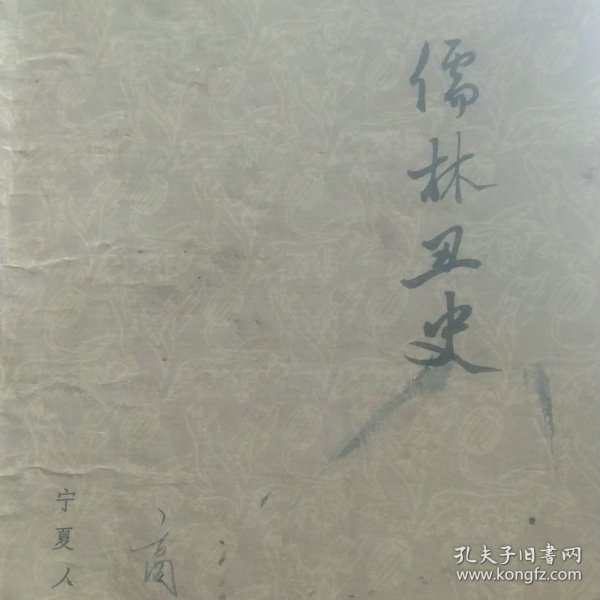 儒林丑史
宁夏人
孔夫子旧书网
www.kongfz.com